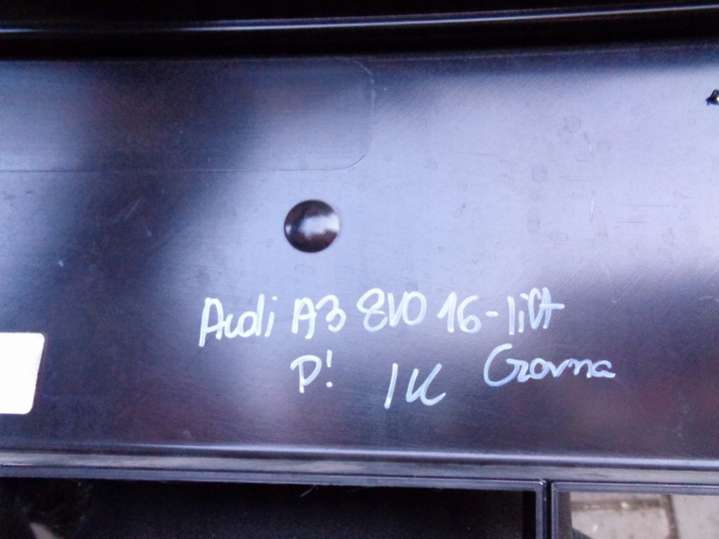 Audi A3 8V0 16-lift
P! 1K Czarna